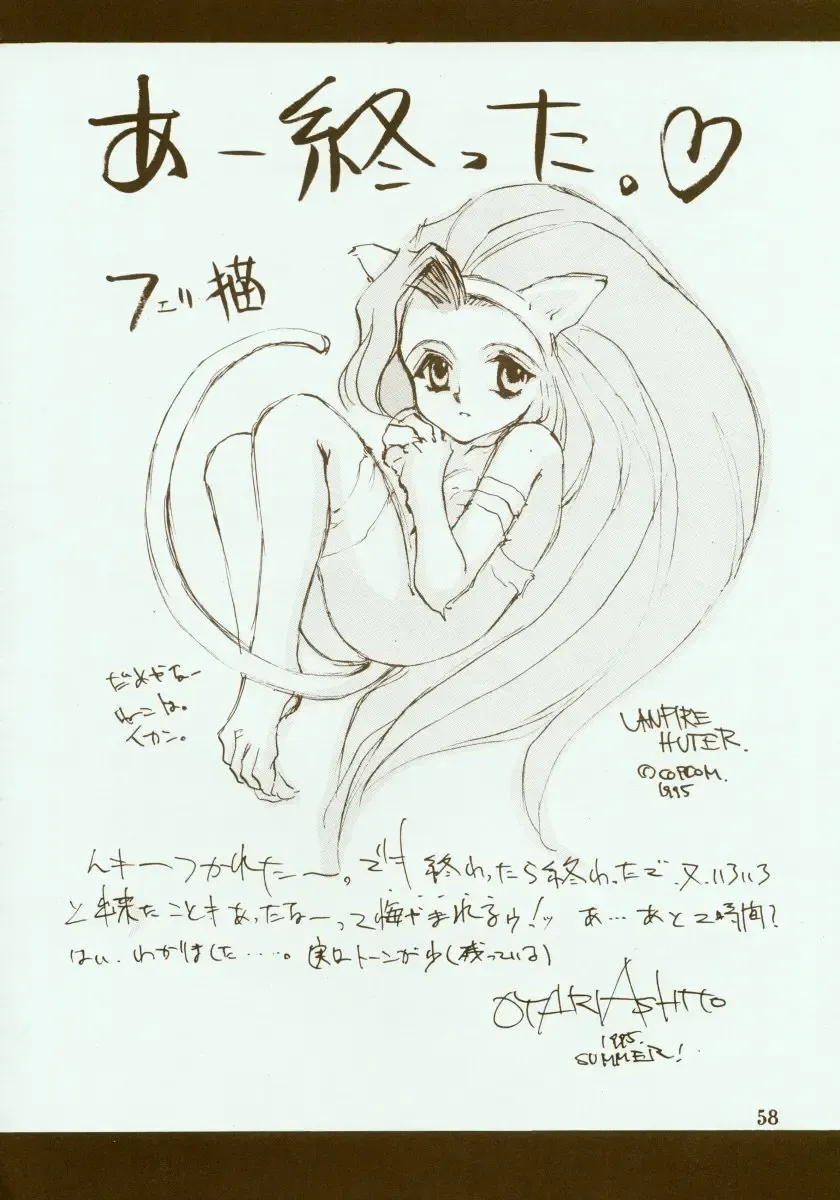 あー終った。♡
フェリ猫
だめやなー
ねこは。
イカン。
VANPIRE
HUTER.
©COPCOM.
1995
んキーつかれたー。でも 終わったら終わったで、又、いろいろ
と出来たこともあったなーって悔やまれるゥ!ッ あ…あと2時間?
はい、わかりました….。実はトーンがゆ(残っている)
OTARIASHITO
1995.
SUMMER!
58